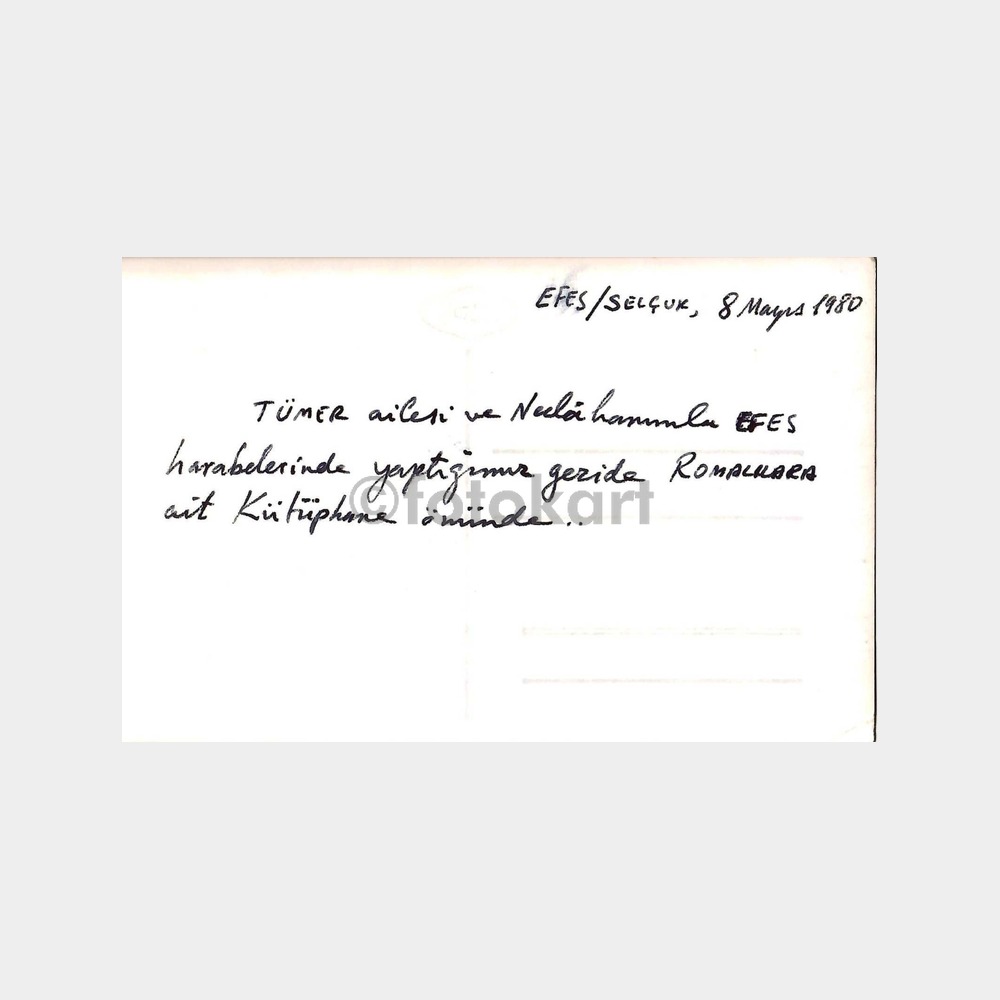 EFES/SELÇUK, 8 Mayıs 1980
TÜMER ailesi ve Neclâ hanımla EFES
harabelerinde yaptığımız gezide ROMALILARA
ait Kütüphane önünde..
©fotokart